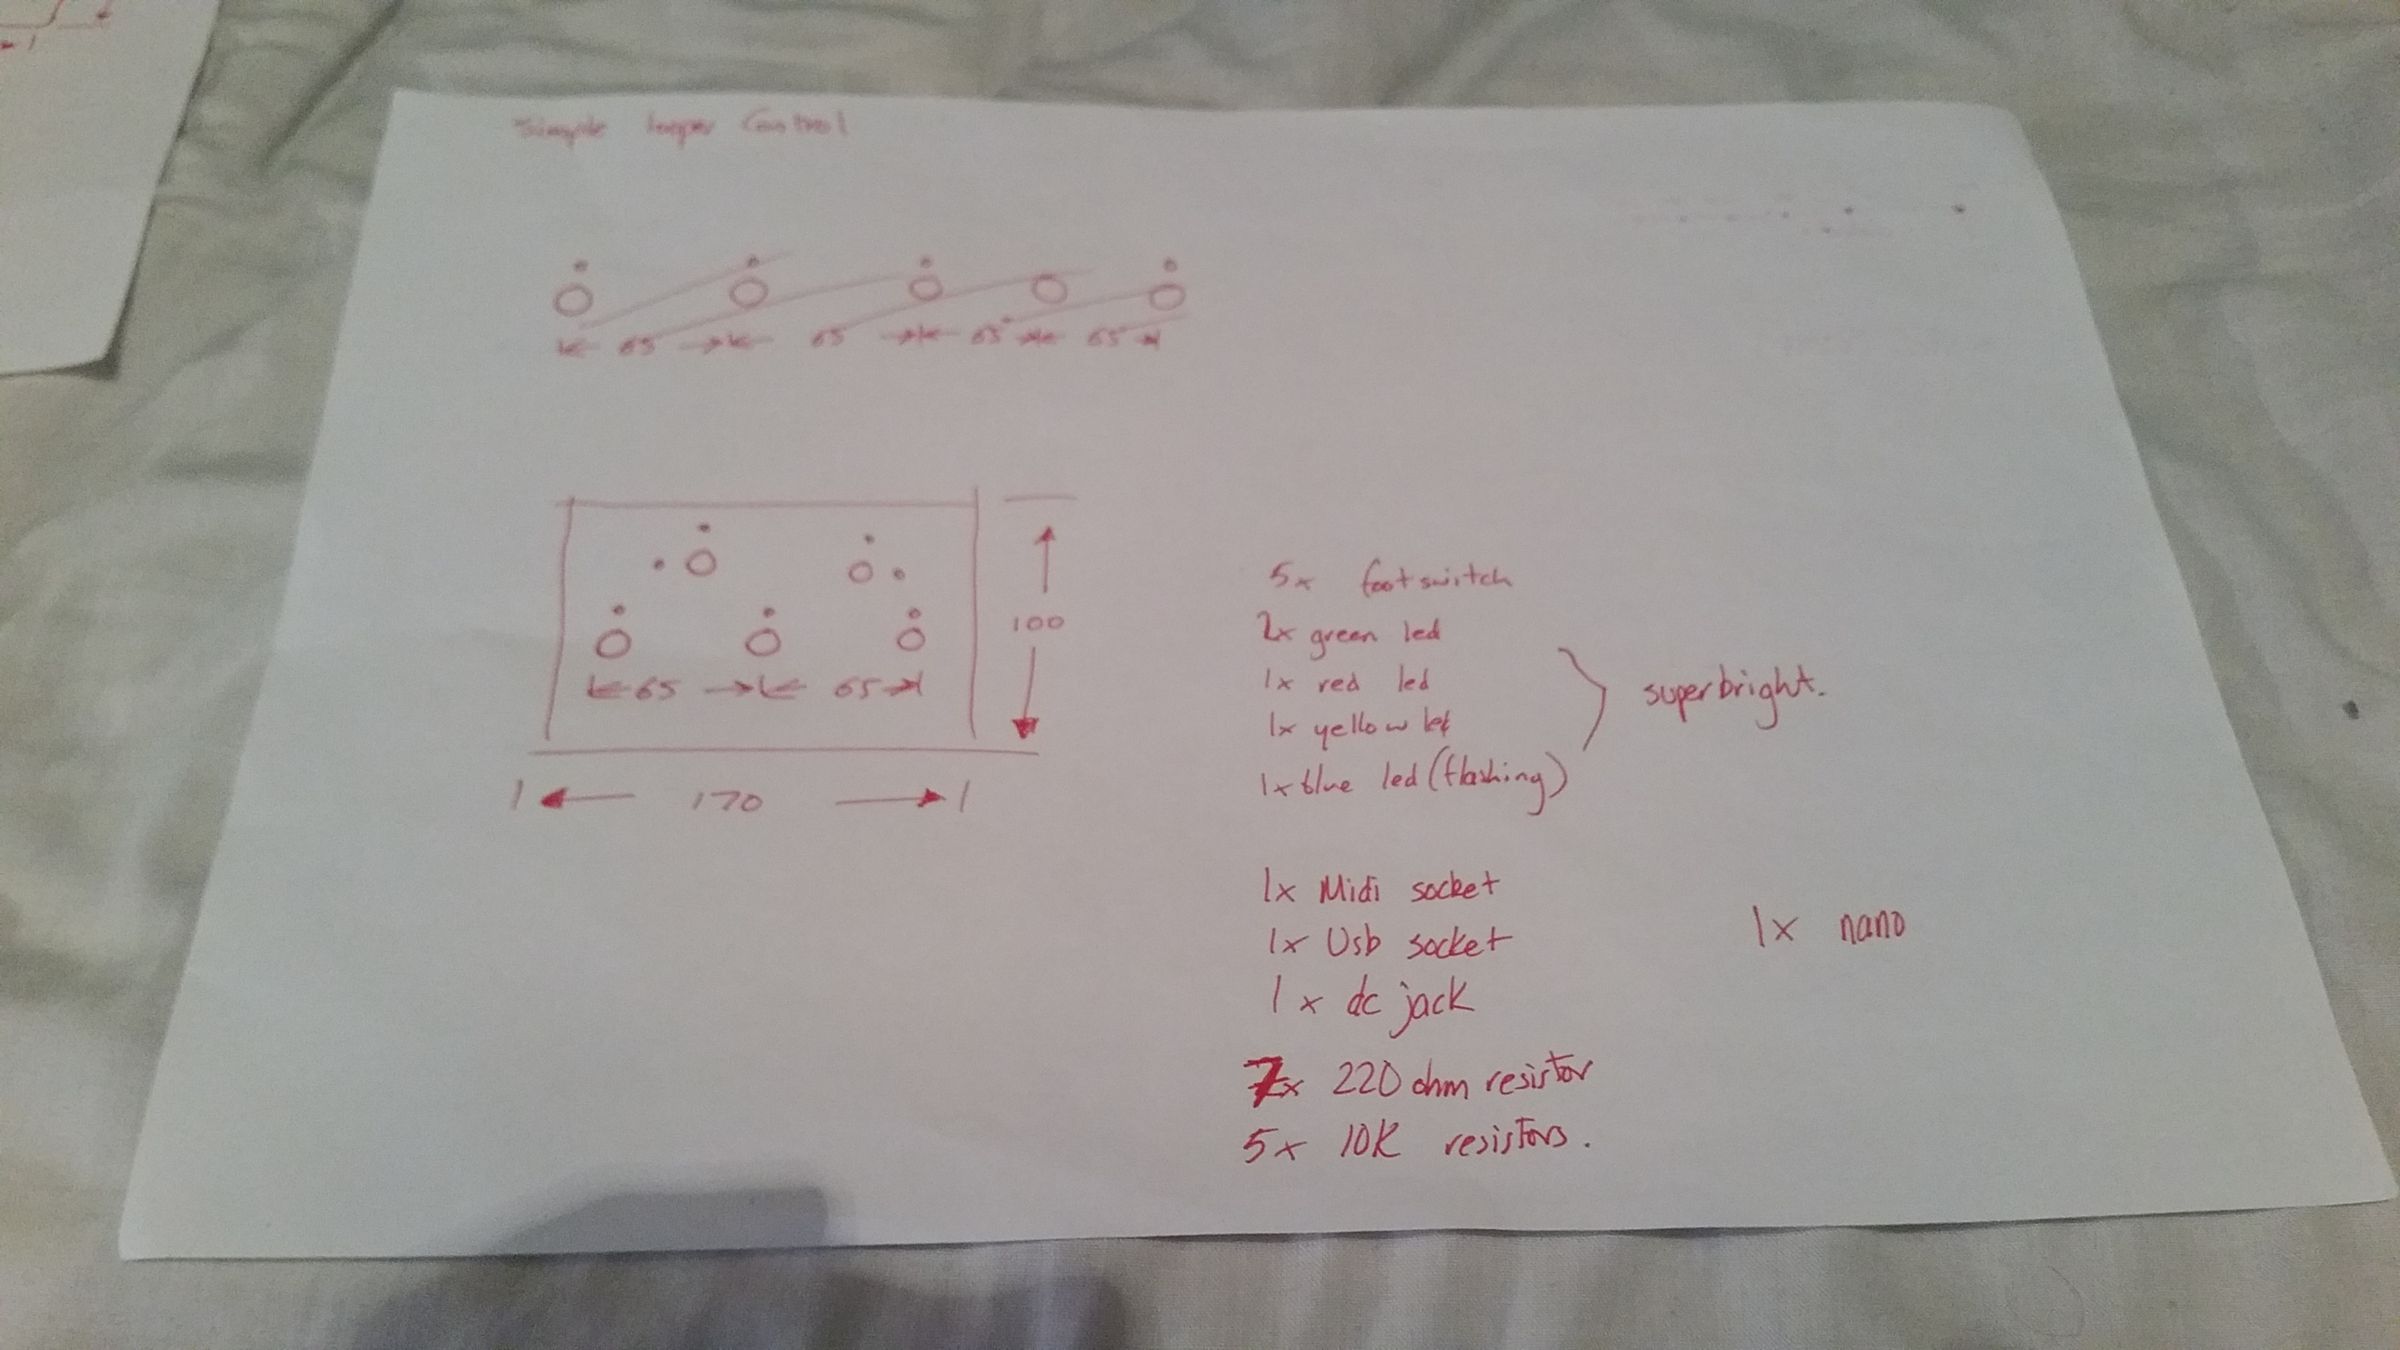 Simple looper Control
65 65 65 65
100
65 65
170
5x footswitch
2x green led
1x red led
1x yellow led
1x blue led (flashing)
superbright.
1x Midi socket
1x Usb socket
1x nano
1x dc jack
7x 220 ohm resistor
5x 10K resistors.